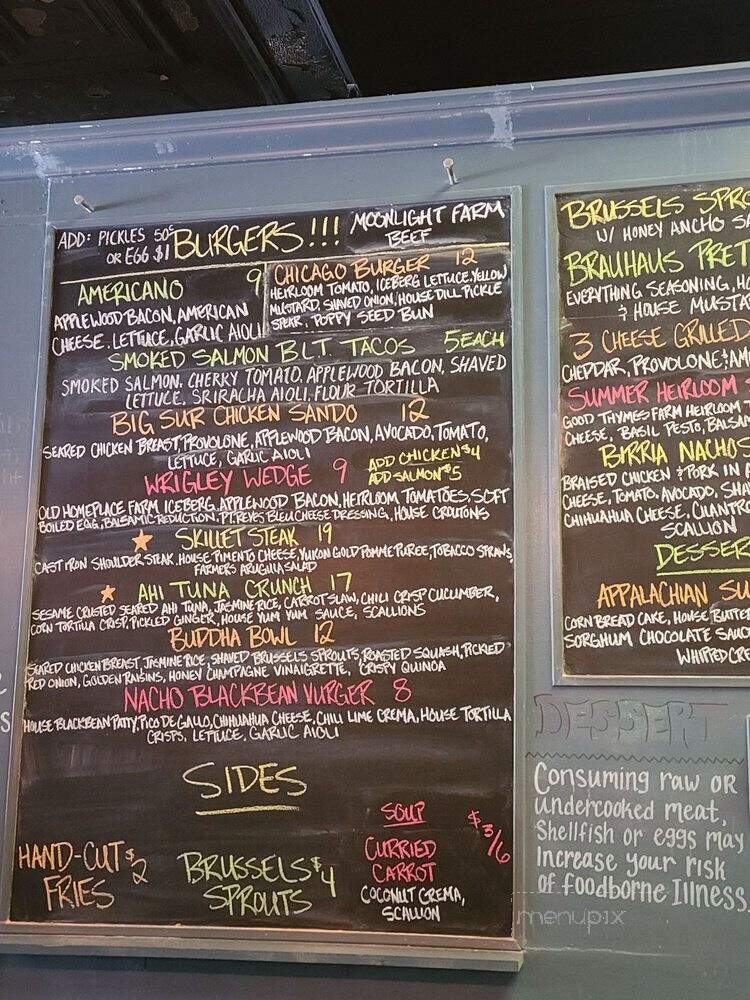 ADD: PICKLES 50¢
OR EGG $1
BURGERS!!!
MOONLIGHT FARM
BEEF
AMERICANO 9
APPLEWOOD BACON, AMERICAN
CHEESE, LETTUCE, GARLIC AIOLI
CHICAGO BURGER 12
HEIRLOOM TOMATO, ICEBERG LETTUCE, YELLOW
MUSTARD, SHAVED ONION, HOUSE DILL PICKLE
SPEAR, POPPY SEED BUN
SMOKED SALMON B.L.T. TACOS 5 EACH
SMOKED SALMON, CHERRY TOMATO, APPLEWOOD BACON, SHAVED
LETTUCE, SRIRACHA AIOLI, FLOUR TORTILLA
BIG SUR CHICKEN SANDO 12
SEARED CHICKEN BREAST, PROVOLONE, APPLEWOOD BACON, AVOCADO, TOMATO,
LETTUCE, GARLIC AIOLI
WRIGLEY WEDGE 9
ADD CHICKEN $4
ADD SALMON $5
OLD HOMEPLACE FARM ICEBERG, APPLEWOOD BACON, HEIRLOOM TOMATOES, SOFT
BOILED EGG, BALSAMIC REDUCTION, PT. REYES BLEU CHEESE DRESSING, HOUSE CROUTONS
SKILLET STEAK 19
CAST IRON SHOULDER STEAK, HOUSE PIMENTO CHEESE, YUKON GOLD POMME PUREE, TOBACCO STRAWS,
FARMERS ARUGULA SALAD
AHI TUNA CRUNCH 17
SESAME CRUSTED SEARED AHI TUNA, JASMINE RICE, CARROT SLAW, CHILI CRISP CUCUMBER,
CORN TORTILLA CRISP, PICKLED GINGER, HOUSE YUM YUM SAUCE, SCALLIONS
BUDDHA BOWL 12
SEARED CHICKEN BREAST, JASMINE RICE, SHAVED BRUSSELS SPROUTS, ROASTED SQUASH, PICKLED
RED ONION, GOLDEN RAISINS, HONEY CHAMPAGNE VINAIGRETTE, CRISPY QUINOA
NACHO BLACKBEAN VURGER 8
HOUSE BLACKBEAN PATTY, PICO DE GALLO, CHIHUAHUA CHEESE, CHILI LIME CREMA, HOUSE TORTILLA
CRISPS, LETTUCE, GARLIC AIOLI
SIDES
HAND-CUT $2
FRIES
BRUSSELS $4
SPROUTS
SOUP $3/6
CURRIED
CARROT
COCONUT CREMA,
SCALLION
BRUSSELS SPRO
W/ HONEY ANCHO SA
BRAUHAUS PRET
EVERYTHING SEASONING, HO
& HOUSE MUSTA
3 CHEESE GRILLED
CHEDDAR, PROVOLONE & AM
SUMMER HEIRLOOM
GOOD THYMES FARM HEIRLOOM
CHEESE, BASIL PESTO, BALSAM
BIRRIA NACHOS
BRAISED CHICKEN & PORK IN B
CHEESE, TOMATO, AVOCADO, SHA
CHIHUAHUA CHEESE, CILANTRO
SCALLION
DESSER
APPALACHIAN SU
CORN BREAD CAKE, HOUSE BUTTE
SORGHUM CHOCOLATE SAUC
WHIPPED CRE
DESSERT
Consuming raw or
undercooked meat,
Shellfish or eggs may
increase your risk
of foodborne Illness.
menupix